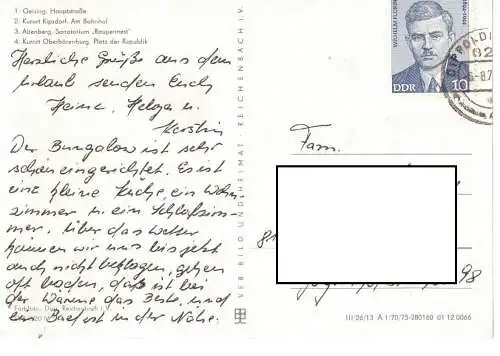 1. Geising, Hauptstraße
2. Kurort Kipsdorf, Am Bahnhof
3. Altenberg, Sanatorium „Raupennest"
4. Kurort Oberbärenburg, Platz der Republik
Herzliche Grüße aus dem
Urlaub senden Euch
Heinz, Helga u.
Kerstin
Der Bungalow ist sehr
schön eingerichtet. Es ist
eine kleine Küche, ein Wohn-
zimmer u. ein Schlafzim-
mer. Über das Wetter
können wir uns bis jetzt
auch nicht beklagen, gehen
oft baden, daß ist bei
der Wärme das Beste, und
ein Bad ist in der Nähe.
VEB BILD UND HEIMAT · REICHENBACH I. V.
WILHELM FLORIN
DDR 10
DIPPOLDI
Fam.
81
98
III/26/13 A 1/70/75-280160 01 12 0066